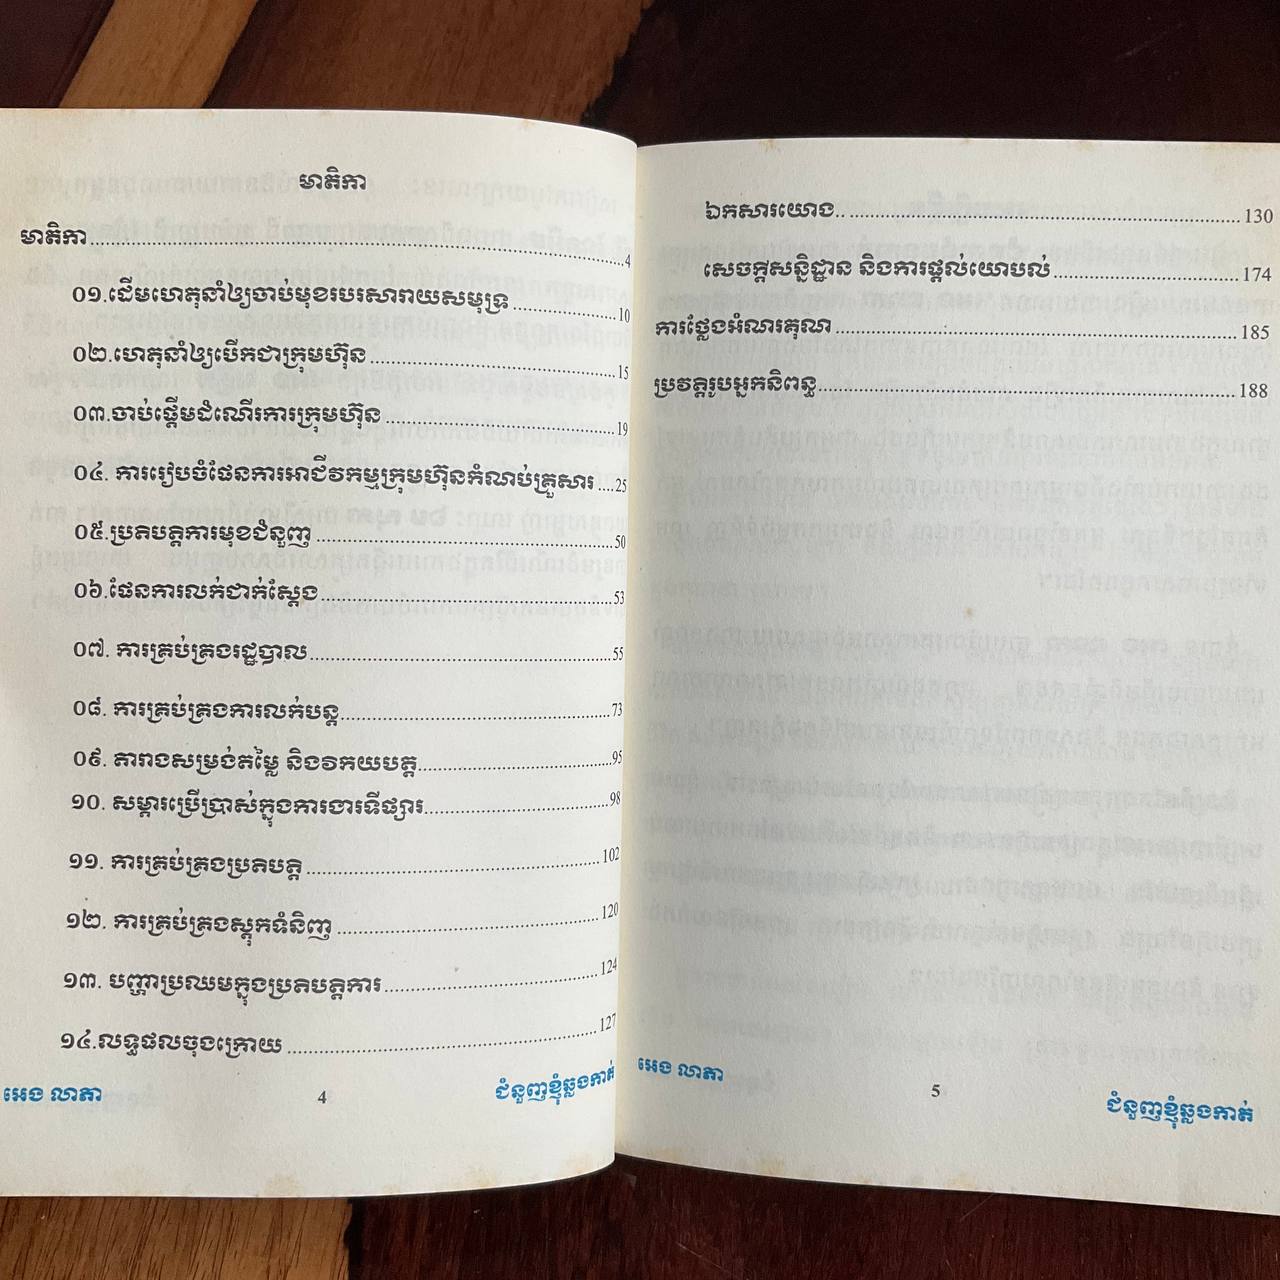 មាតិកា
មាតិកា....................4
០១.ដើមហេតុនាំឲ្យចាប់មុខរបរសារាយសមុទ្រ....................10
០២.ហេតុនាំឲ្យបើកជាក្រុមហ៊ុន....................15
០៣.ចាប់ផ្តើមដំណើរការក្រុមហ៊ុន....................19
០៤. ការរៀបចំផែនការអាជីវកម្មក្រុមហ៊ុនកំណប់គ្រួសារ ....25
០៥.ប្រតិបត្តិការមុខជំនួញ ....................50
០៦.ផែនការលក់ជាក់ស្តែង ....................53
០៧. ការគ្រប់គ្រងរដ្ឋបាល....................55
០៨. ការគ្រប់គ្រងការលក់បន្ត....................73
០៩. តារាងសម្រង់តម្លៃ និងវិកយបត្ត....................95
១០. សម្ភារប្រើប្រាស់ក្នុងការងារទីផ្សារ....................98
១១. ការគ្រប់គ្រងប្រតិបត្តិ ....................102
១២. ការគ្រប់គ្រងស្តុកទំនិញ ....................120
១៣. បញ្ហាប្រឈមក្នុងប្រតិបត្តិការ ....................124
១៤.លទ្ធផលចុងក្រោយ ....................127
អេង លាភា
4
ជំនួញខ្ញុំឆ្លងកាត់
ឯកសារយោង.. ....................130
សេចក្តីសន្និដ្ឋាន និងការផ្តល់យោបល់....................174
ការថ្លែងអំណរគុណ ....................185
ប្រវត្តិរូបអ្នកនិពន្ធ....................188
អេង លាភា
5
ជំនួញខ្ញុំឆ្លងកាត់